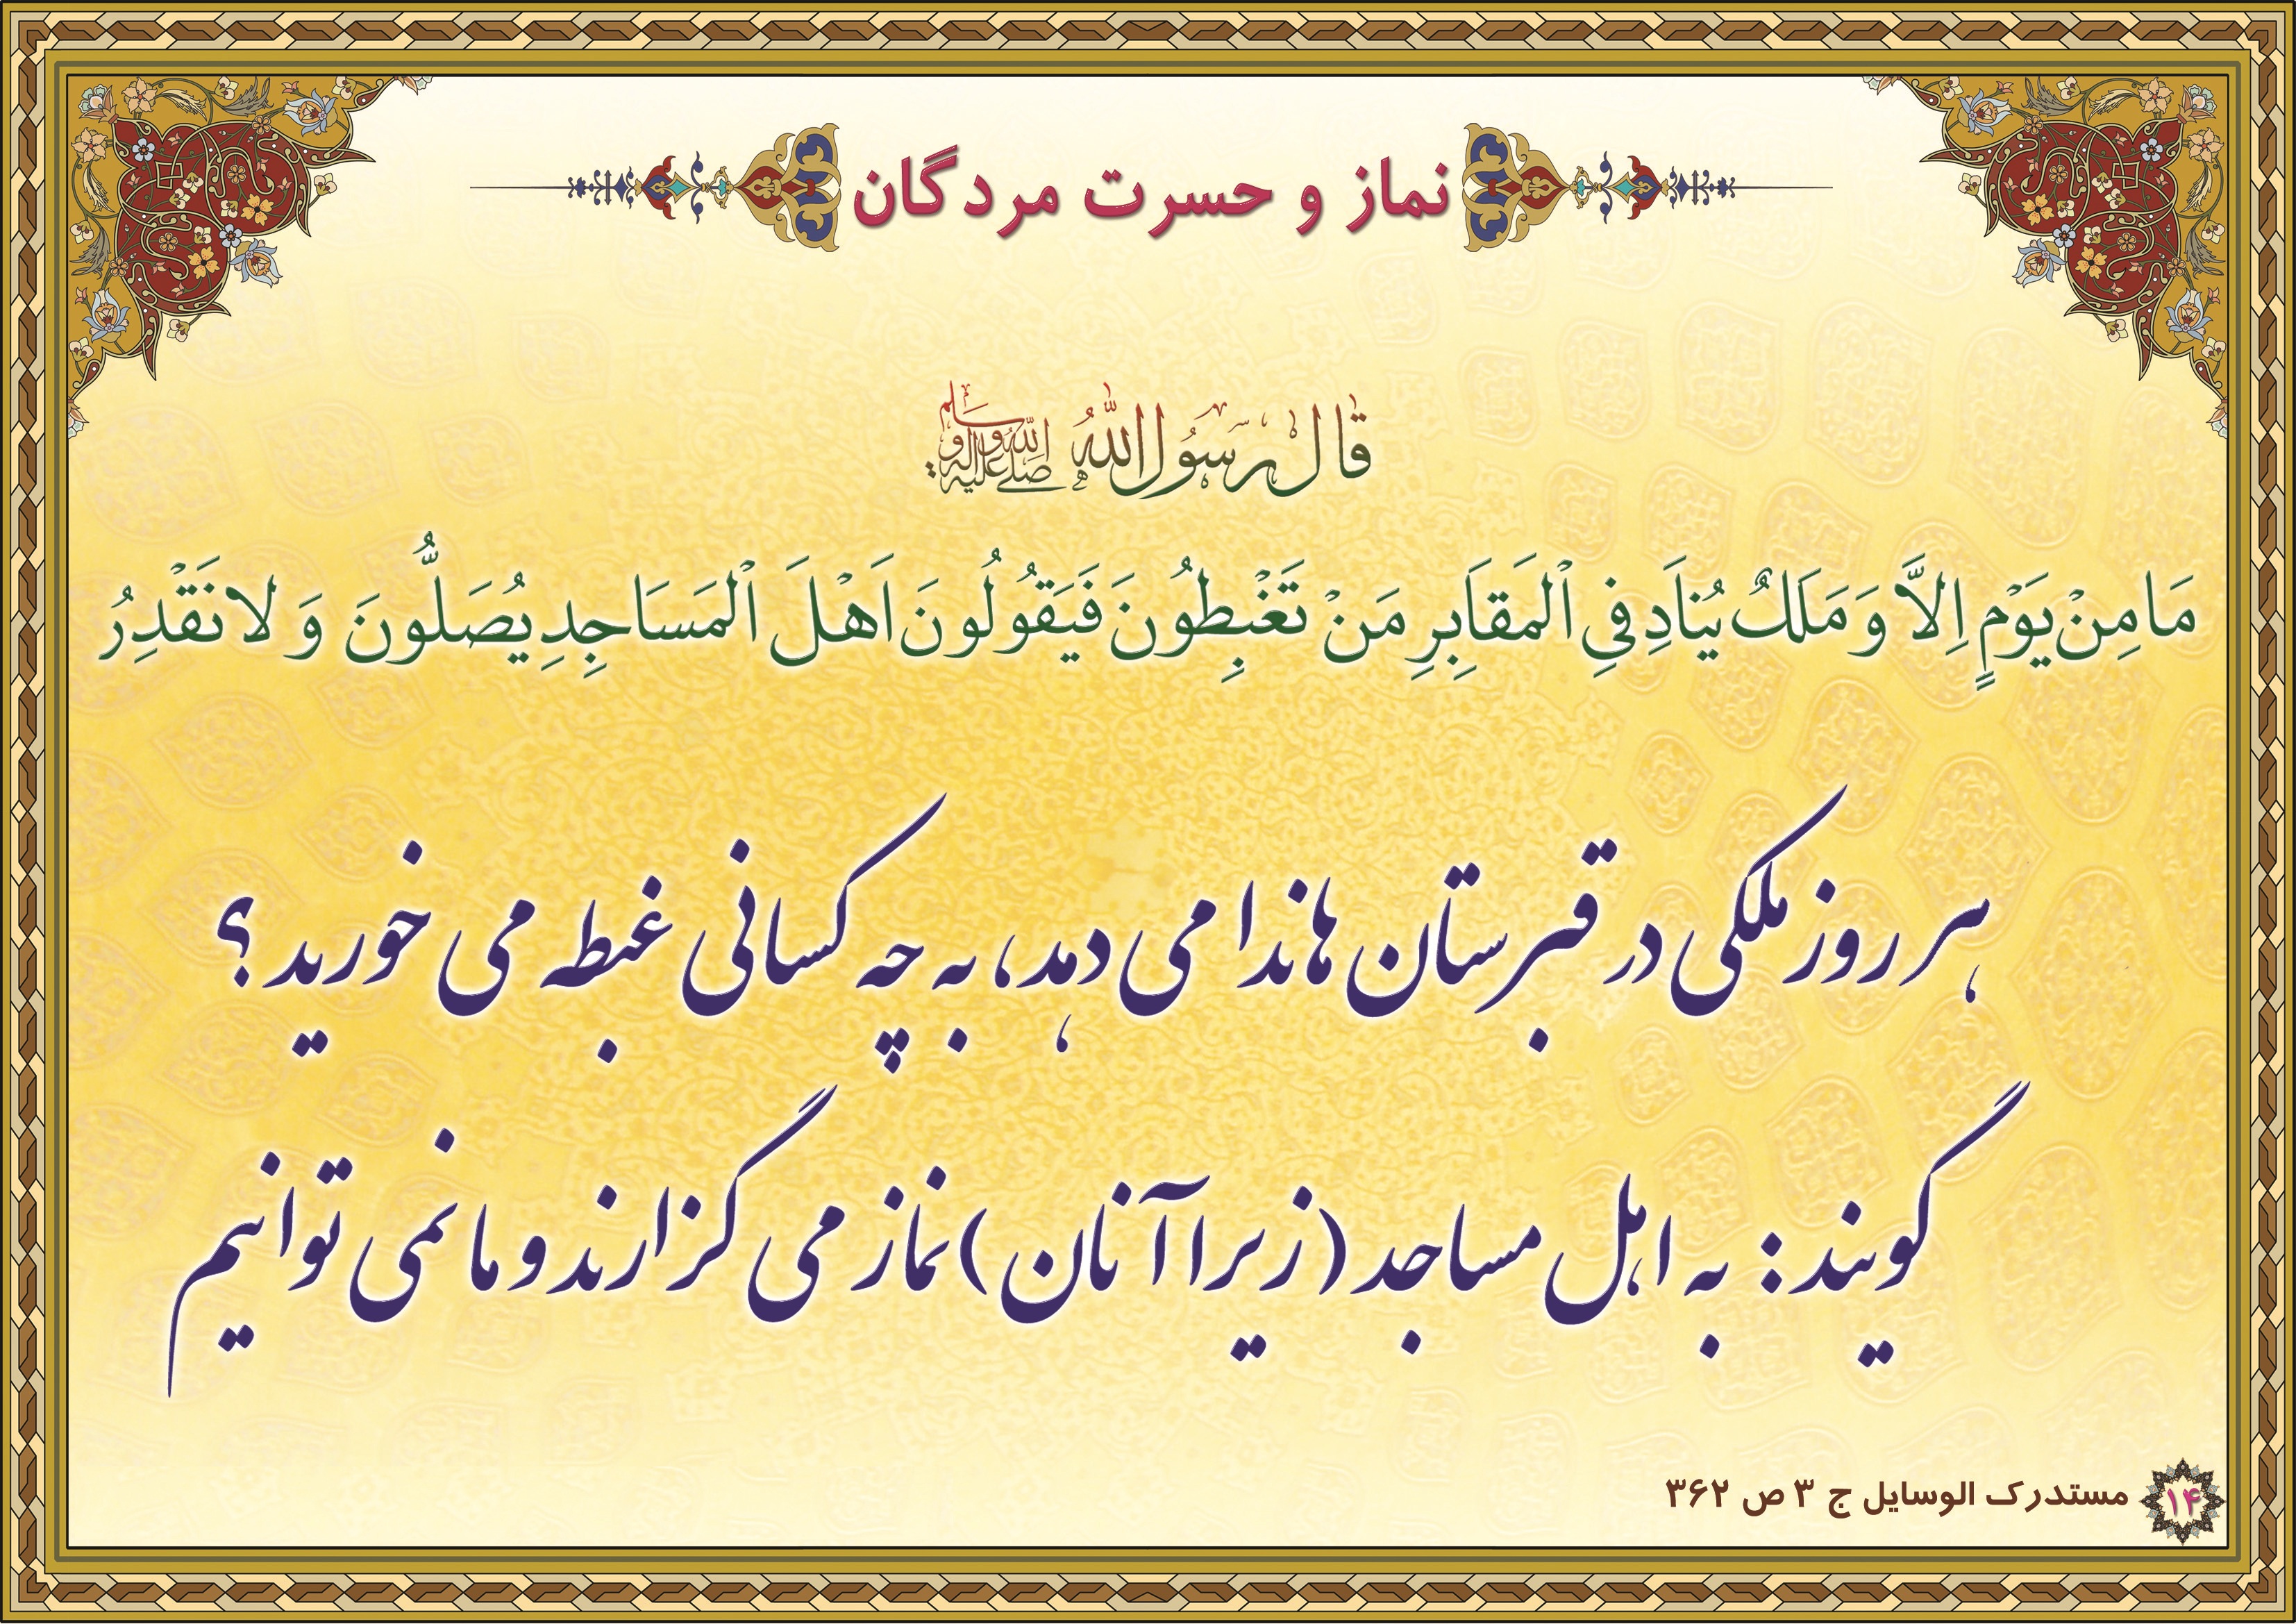 نماز و حسرت مردگان
قال رسول الله صلی الله علیه و آله وسلم
مَا مِنْ یَوْمٍ اِلاَّ وَ مَلَكٌ یُنَادِ فِي الْمَقَابِرِ مَنْ تَغْبِطُونَ فَیَقُولُونَ اَهْلَ الْمَسَاجِدِ یُصَلُّونَ وَ لا نَقْدِرُ
هر روز ملکی در قبرستان ها ندا می دهد، به چه کسانی غبطه می خورید ؟
گویند : به اهل مساجد (زیرا آنان) نماز می گزارند و ما نمی توانیم
۱۴ مستدرک الوسایل ج ۳ ص ۳۶۲